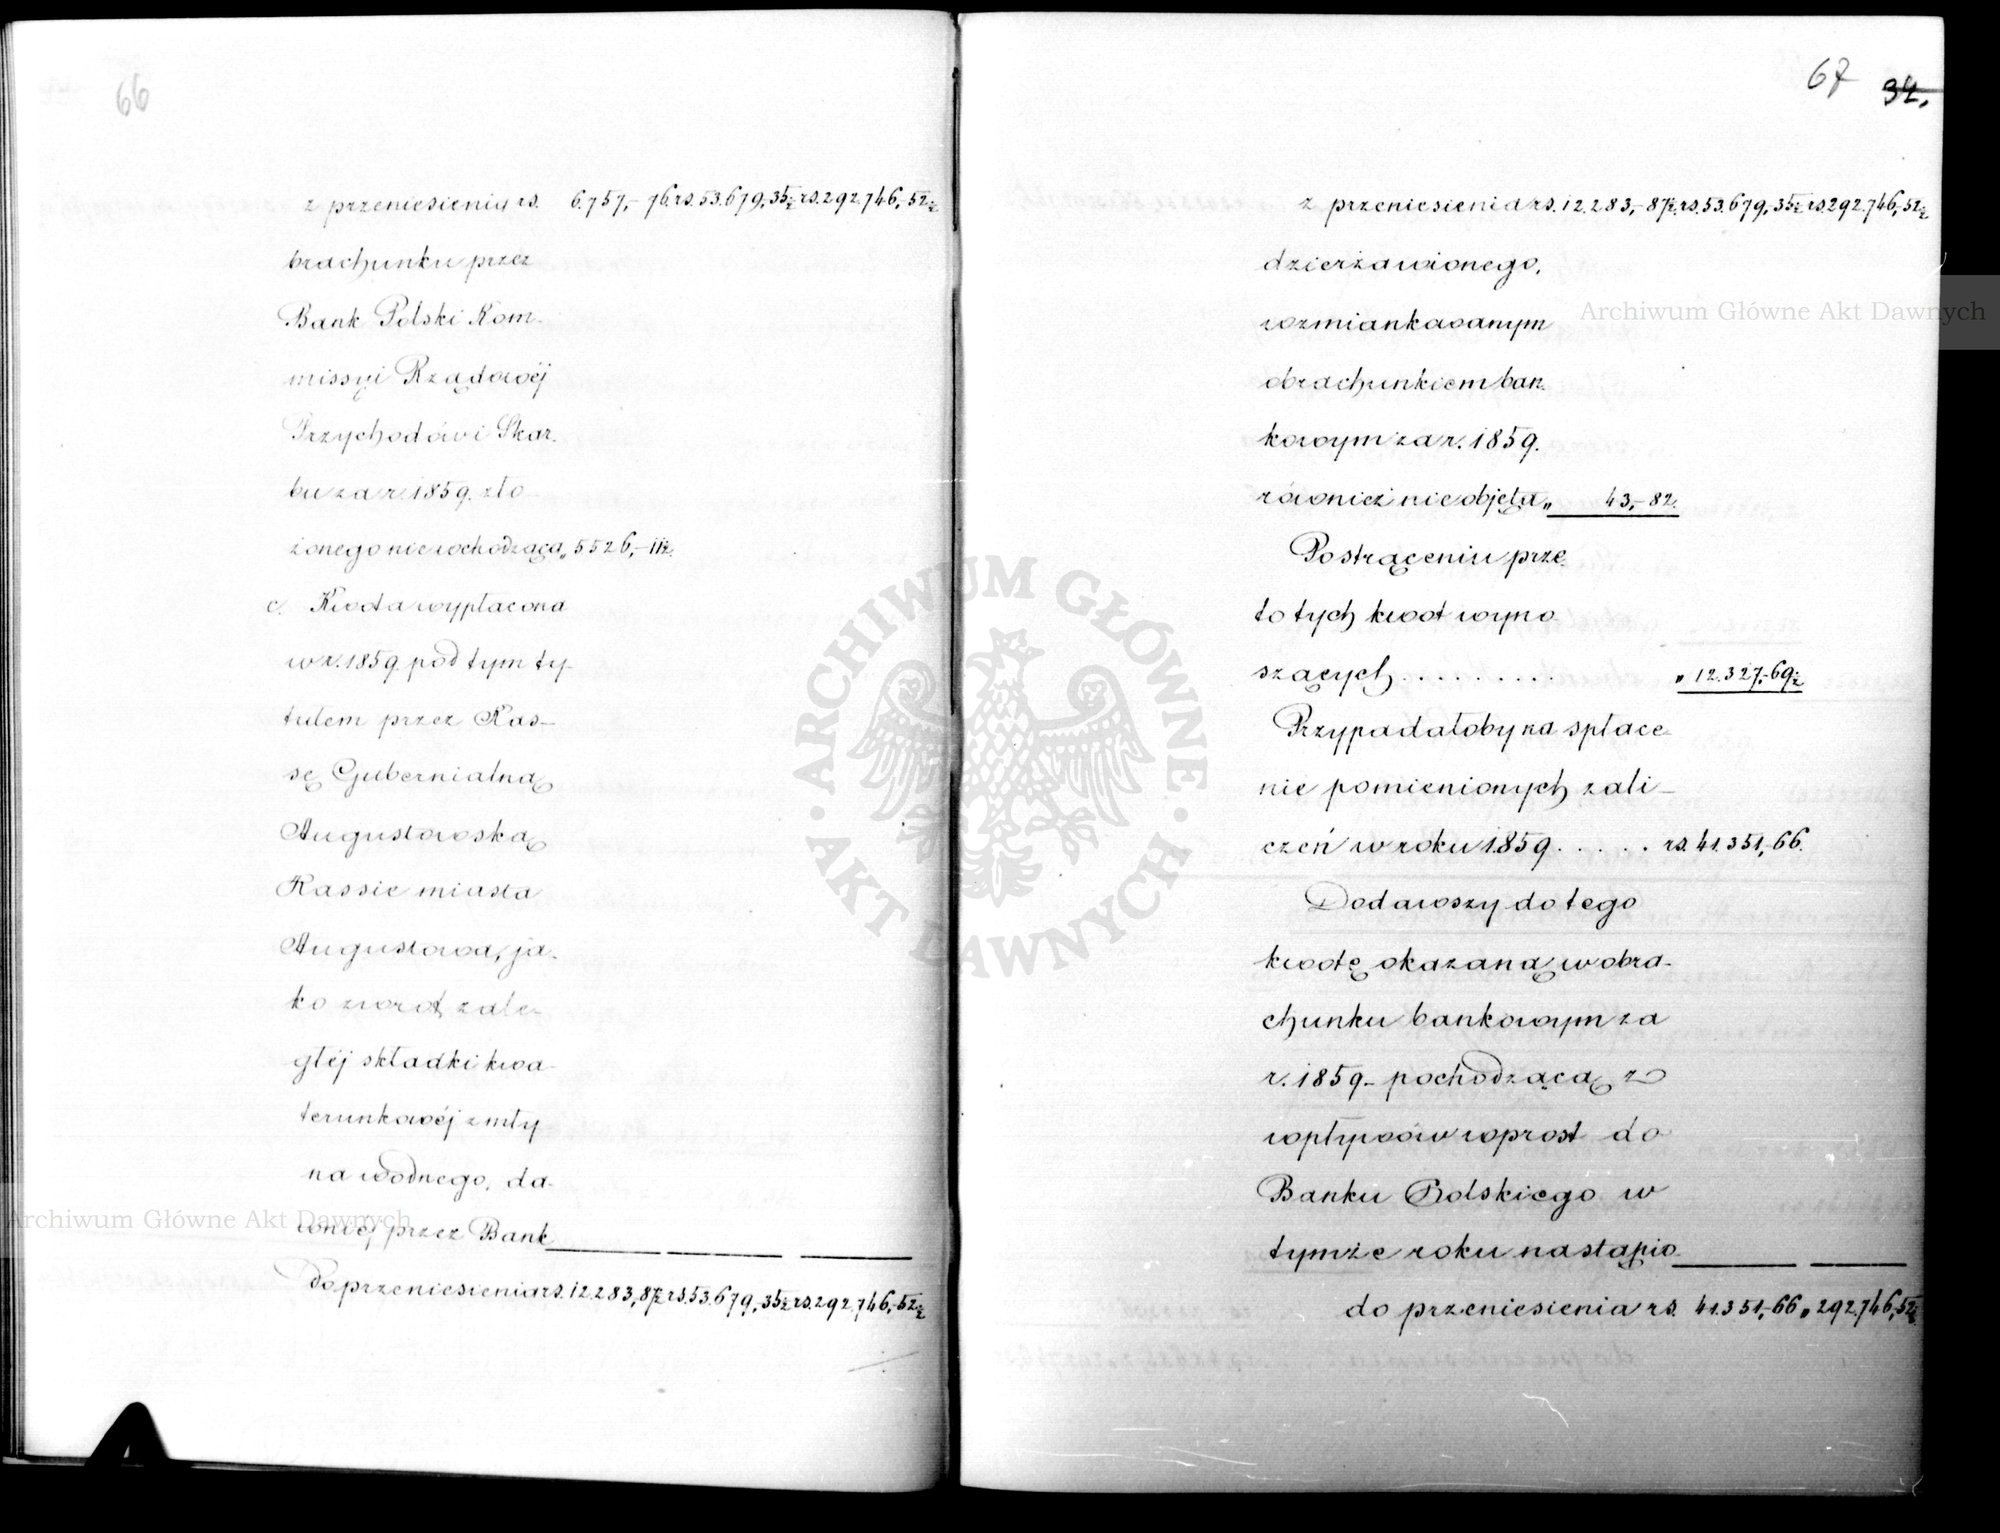 66
z przeniesienia rs. 6.757,-76. rs. 53.679,-35½ rs. 292.746,-52½
brachunku przez
Bank Polski Kom-
missyi Rządowéj
Przychodów i Skar-
bu za r. 1859. zło-
żonego nie wchodząca „ 5526,-11½.
c. Kwota wypłacona
w r. 1859 pod tym ty-
tułem przez Kas-
sę Gubernialną
Augustowską
Kassie miasta
Augustowa, ja-
ko zwrot zale-
głéj składki kwa-
terunkowéj z mły-
na wodnego, da-
wniéj przez Bank
Do przeniesienia rs. 12.283,87½ rs. 53.679,-35½ rs. 292.746,-52½
67 34.
z przeniesienia rs. 12.283,-87½ rs. 53.679,-35½ rs. 292.746,-52½
dzierżawionego,
wzmiankowanym
obrachunkiem ban-
kowym za r. 1859.
również nie objęta „ 43,-82.
Po strąceniu prze-
to tych kwot wyno-
szących . . . . . . . . . „ 12.327,-69½
Przypadałoby na spłace-
nie pomienionych zali-
czeń w roku 1859 . . . . . rs. 41.351,-66.
Dodawszy do tego
kwotę okazaną w obra-
chunku bankowym za
r. 1859 - pochodzącą z
wpływów wprost do
Banku Polskiego w
tymże roku nastąpio-
do przeniesienia rs. 41.351,-66 „ 292.746,-52½
Archiwum Główne Akt Dawnych
Archiwum Główne Akt Dawnych
ARCHIWUM GŁÓWNE · AKT DAWNYCH ·